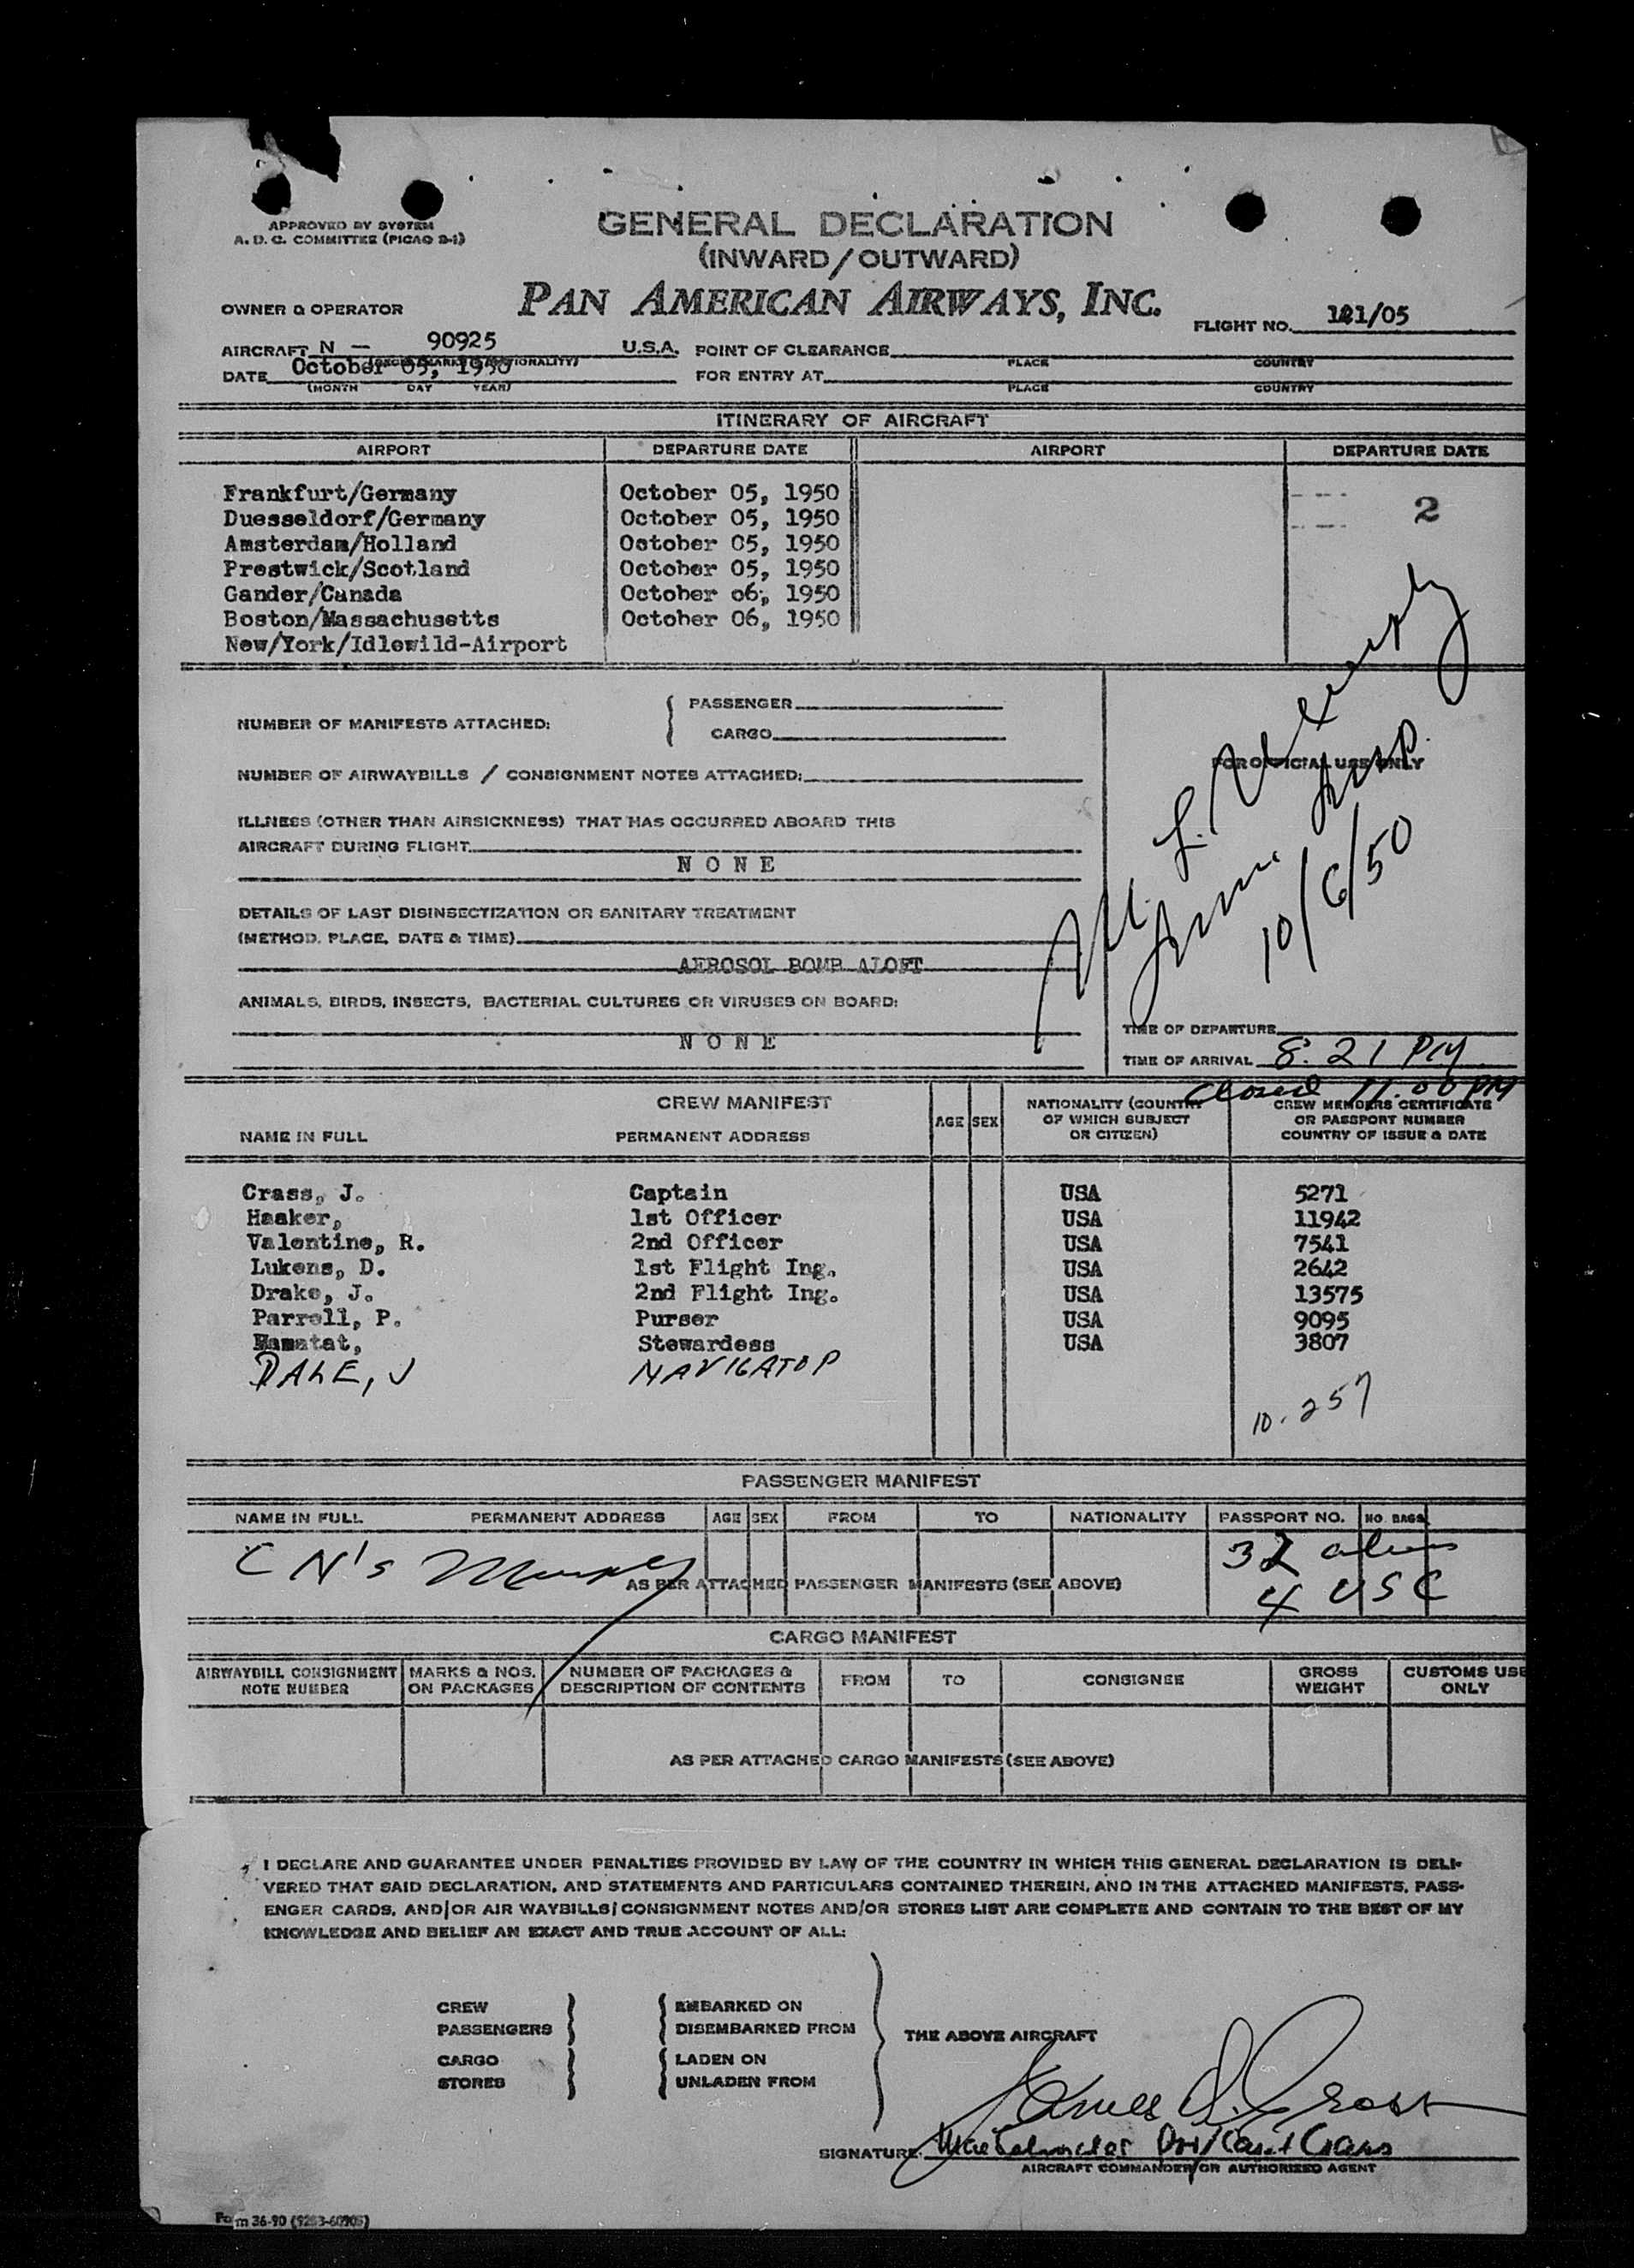 APPROVED BY SYSTEM
A. D. C. COMMITTEE (PICAO 2-1)
GENERAL DECLARATION
(INWARD/OUTWARD)
OWNER & OPERATOR
PAN AMERICAN AIRWAYS, INC.
FLIGHT NO. 121/05
AIRCRAFT N - 90925 U.S.A. POINT OF CLEARANCE
PLACE COUNTRY
DATE October 05, 1950 FOR ENTRY AT
(MONTH DAY YEAR) PLACE COUNTRY
ITINERARY OF AIRCRAFT
AIRPORT DEPARTURE DATE AIRPORT DEPARTURE DATE
Frankfurt/Germany October 05, 1950
Duesseldorf/Germany October 05, 1950 2
Amsterdam/Holland October 05, 1950
Prestwick/Scotland October 05, 1950
Gander/Canada October 06, 1950
Boston/Massachusetts October 06, 1950
New/York/Idlewild-Airport
NUMBER OF MANIFESTS ATTACHED: PASSENGER
CARGO
FOR OFFICIAL USE ONLY
NUMBER OF AIRWAYBILLS / CONSIGNMENT NOTES ATTACHED:
ILLNESS (OTHER THAN AIRSICKNESS) THAT HAS OCCURRED ABOARD THIS
AIRCRAFT DURING FLIGHT
N O N E
10/6/50
DETAILS OF LAST DISINSECTIZATION OR SANITARY TREATMENT
(METHOD, PLACE, DATE & TIME)
AEROSOL BOMB ALOFT
ANIMALS, BIRDS, INSECTS, BACTERIAL CULTURES OR VIRUSES ON BOARD:
N O N E
TIME OF DEPARTURE
TIME OF ARRIVAL 8:21 PM
Closed 11:00 PM
CREW MANIFEST
NAME IN FULL PERMANENT ADDRESS AGE SEX NATIONALITY (COUNTRY OF WHICH SUBJECT OR CITIZEN) CREW MEMBERS CERTIFICATE OR PASSPORT NUMBER COUNTRY OF ISSUE & DATE
Crass, J. Captain USA 5271
Haaker, 1st Officer USA 11942
Valentine, R. 2nd Officer USA 7541
Lukens, D. 1st Flight Ing. USA 2642
Drake, J. 2nd Flight Ing. USA 13575
Parrell, P. Purser USA 9095
Stewardess USA 3807
DALE, J NAVIGATOR
10.257
PASSENGER MANIFEST
NAME IN FULL PERMANENT ADDRESS AGE SEX FROM TO NATIONALITY PASSPORT NO. NO. BAGS
C N's 32 aliens
AS PER ATTACHED PASSENGER MANIFESTS (SEE ABOVE) 4 USC
CARGO MANIFEST
AIRWAYBILL CONSIGNMENT NOTE NUMBER MARKS & NOS. ON PACKAGES NUMBER OF PACKAGES & DESCRIPTION OF CONTENTS FROM TO CONSIGNEE GROSS WEIGHT CUSTOMS USE ONLY
AS PER ATTACHED CARGO MANIFESTS (SEE ABOVE)
I DECLARE AND GUARANTEE UNDER PENALTIES PROVIDED BY LAW OF THE COUNTRY IN WHICH THIS GENERAL DECLARATION IS DELI-
VERED THAT SAID DECLARATION, AND STATEMENTS AND PARTICULARS CONTAINED THEREIN, AND IN THE ATTACHED MANIFESTS, PASS-
ENGER CARDS, AND/OR AIR WAYBILLS/CONSIGNMENT NOTES AND/OR STORES LIST ARE COMPLETE AND CONTAIN TO THE BEST OF MY
KNOWLEDGE AND BELIEF AN EXACT AND TRUE ACCOUNT OF ALL:
CREW EMBARKED ON
PASSENGERS DISEMBARKED FROM
THE ABOVE AIRCRAFT
CARGO LADEN ON
STORES UNLADEN FROM
SIGNATURE
AIRCRAFT COMMANDER OR AUTHORIZED AGENT
Form 36-90